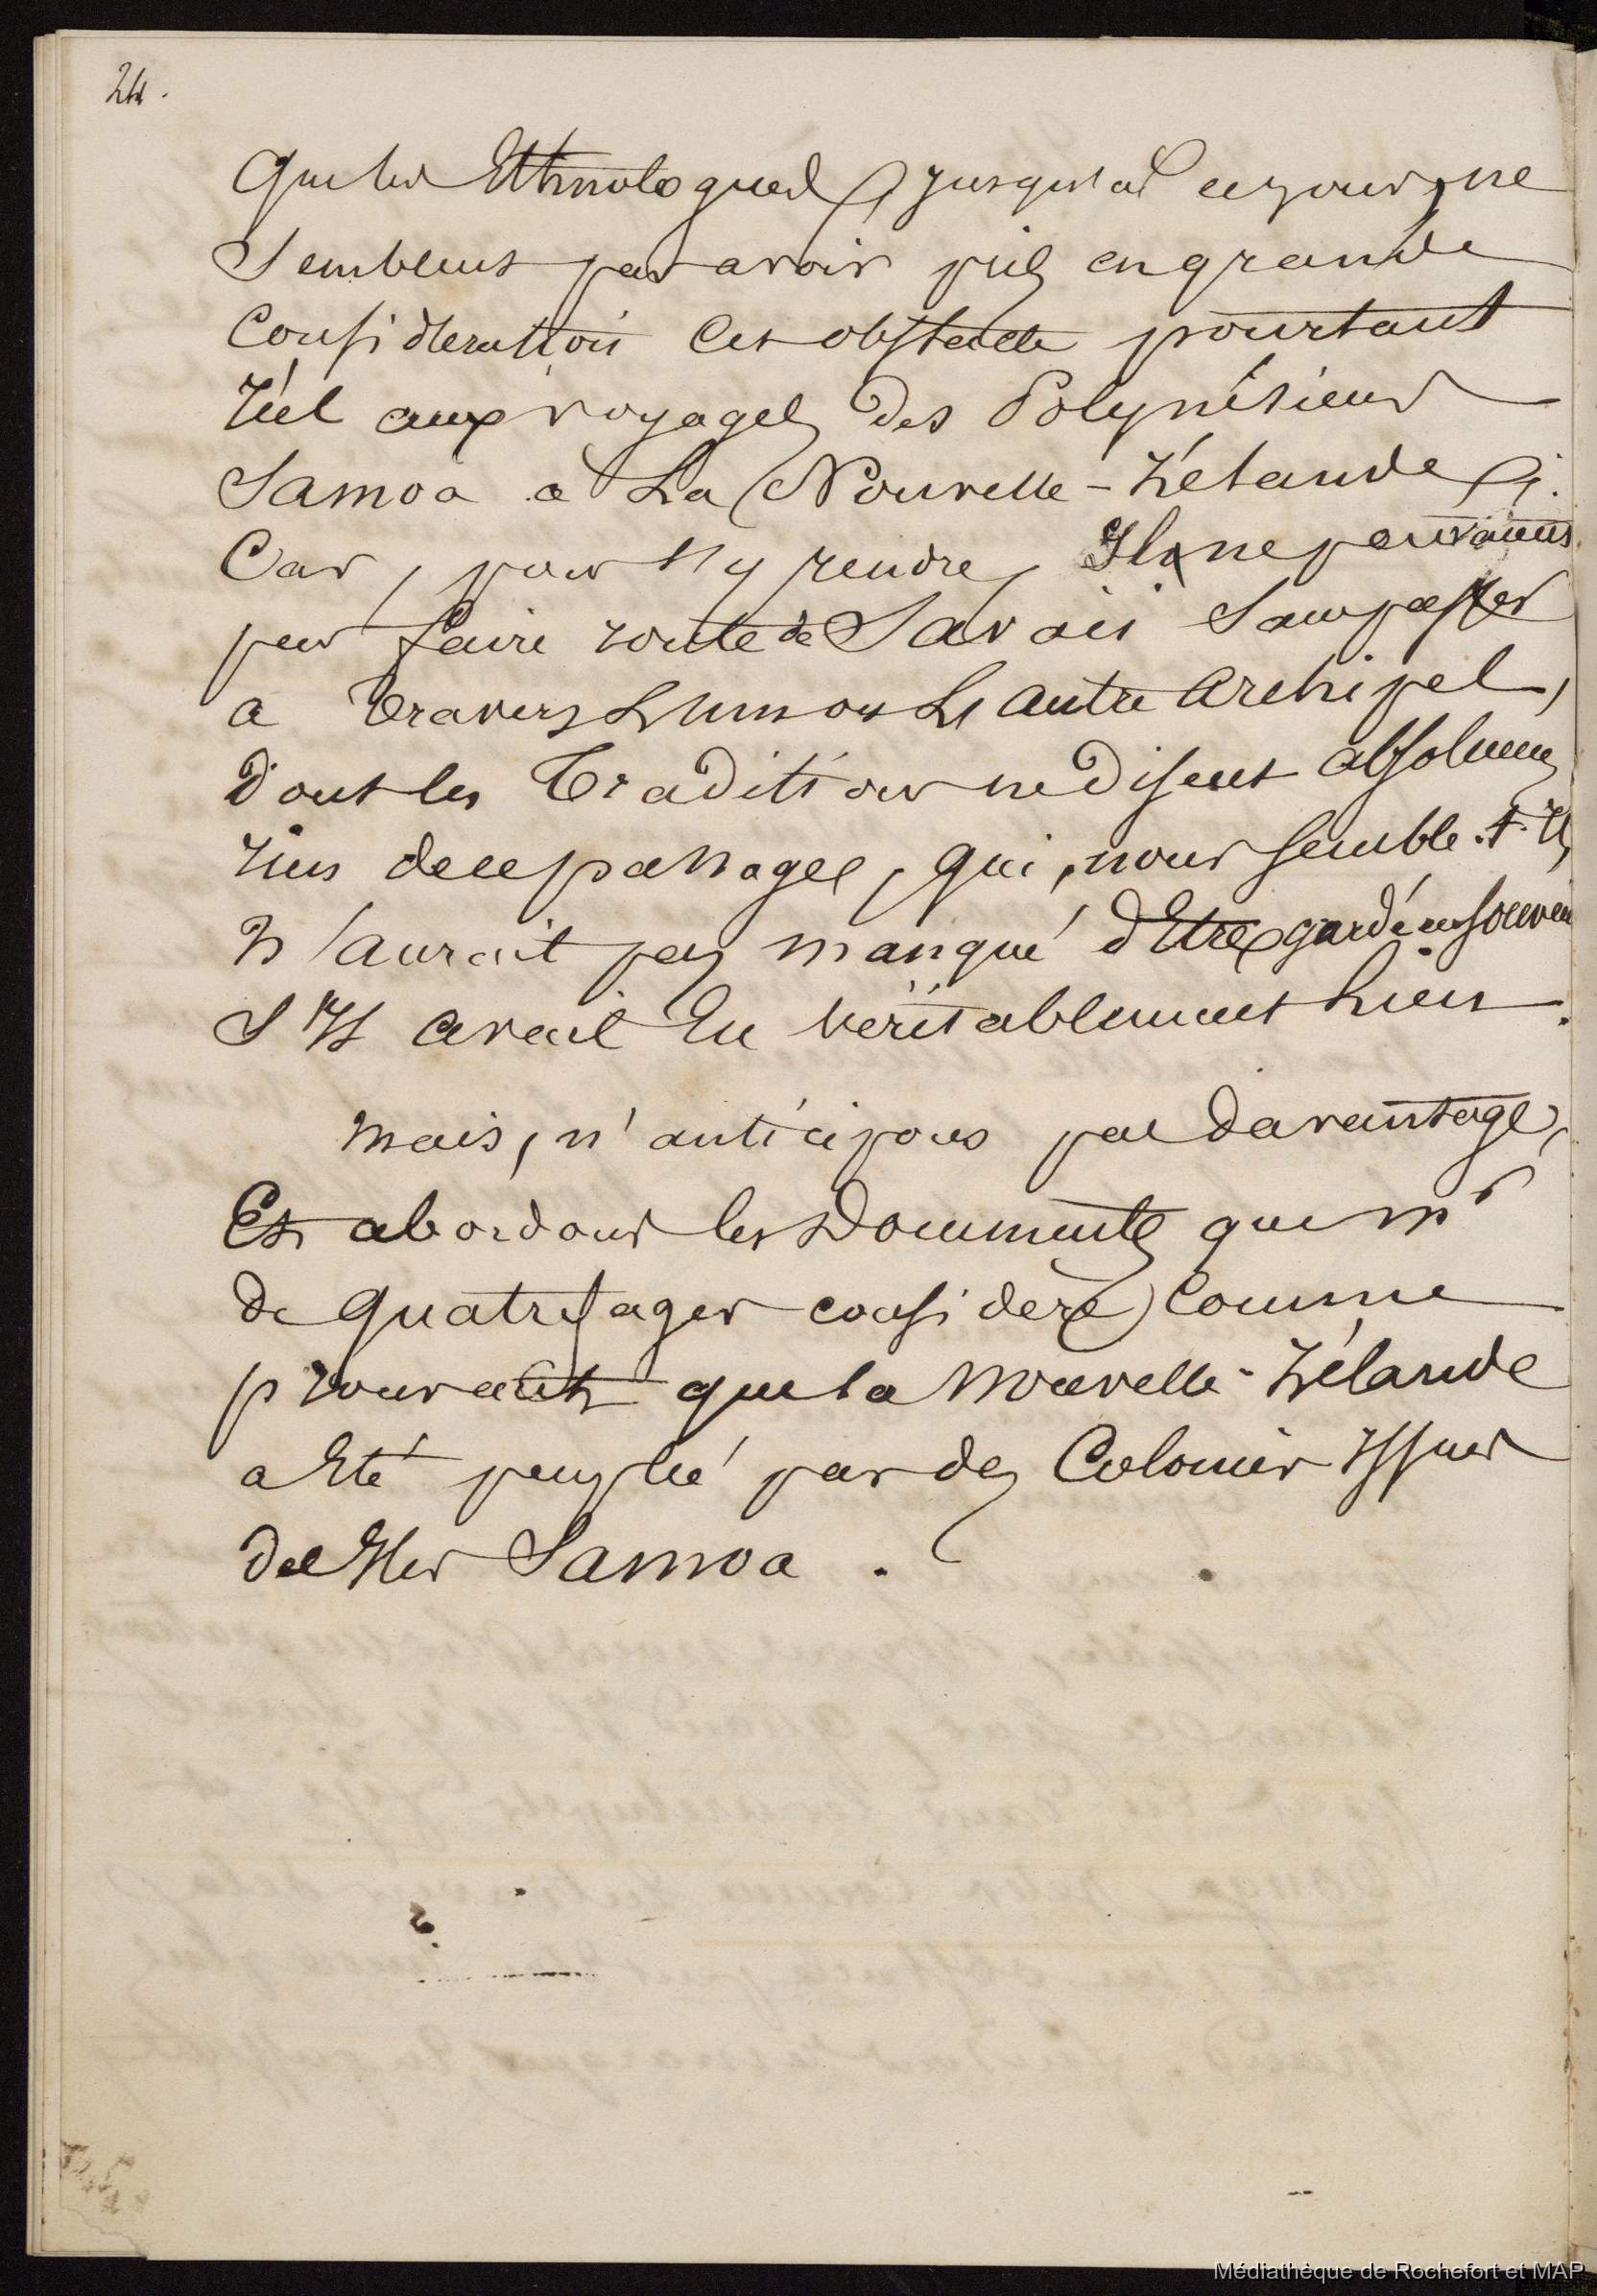 24.
Que les Ethnologues, jusqu'à ce jour, ne
Semblent pas avoir pris en grande
Considération cet obstacle pourtant
réel aux voyages des Polynésiens
Samoa à La Nouvelle-Zélande ;
Car, pour s'y rendre, Ils ne pouvaient
pas faire route de Savaii sans passer
a travers L'un ou L'autre archipel,
Dont les Traditions ne Disent absolument
rien de ce passage, qui, nous semble-t-Il,
N'aurait pas manqué d'Etre gardé en souvenir
S'Il avait Eu véritablement lieu.
Mais, n'anticipons pas Davantage,
Et abordons les Documents que Mr
de Quatrefages considère comme
prouvant que la Nouvelle-Zélande
a Eté peuplé par des Colonies Issues
des Iles Samoa.
Médiathèque de Rochefort et MAP